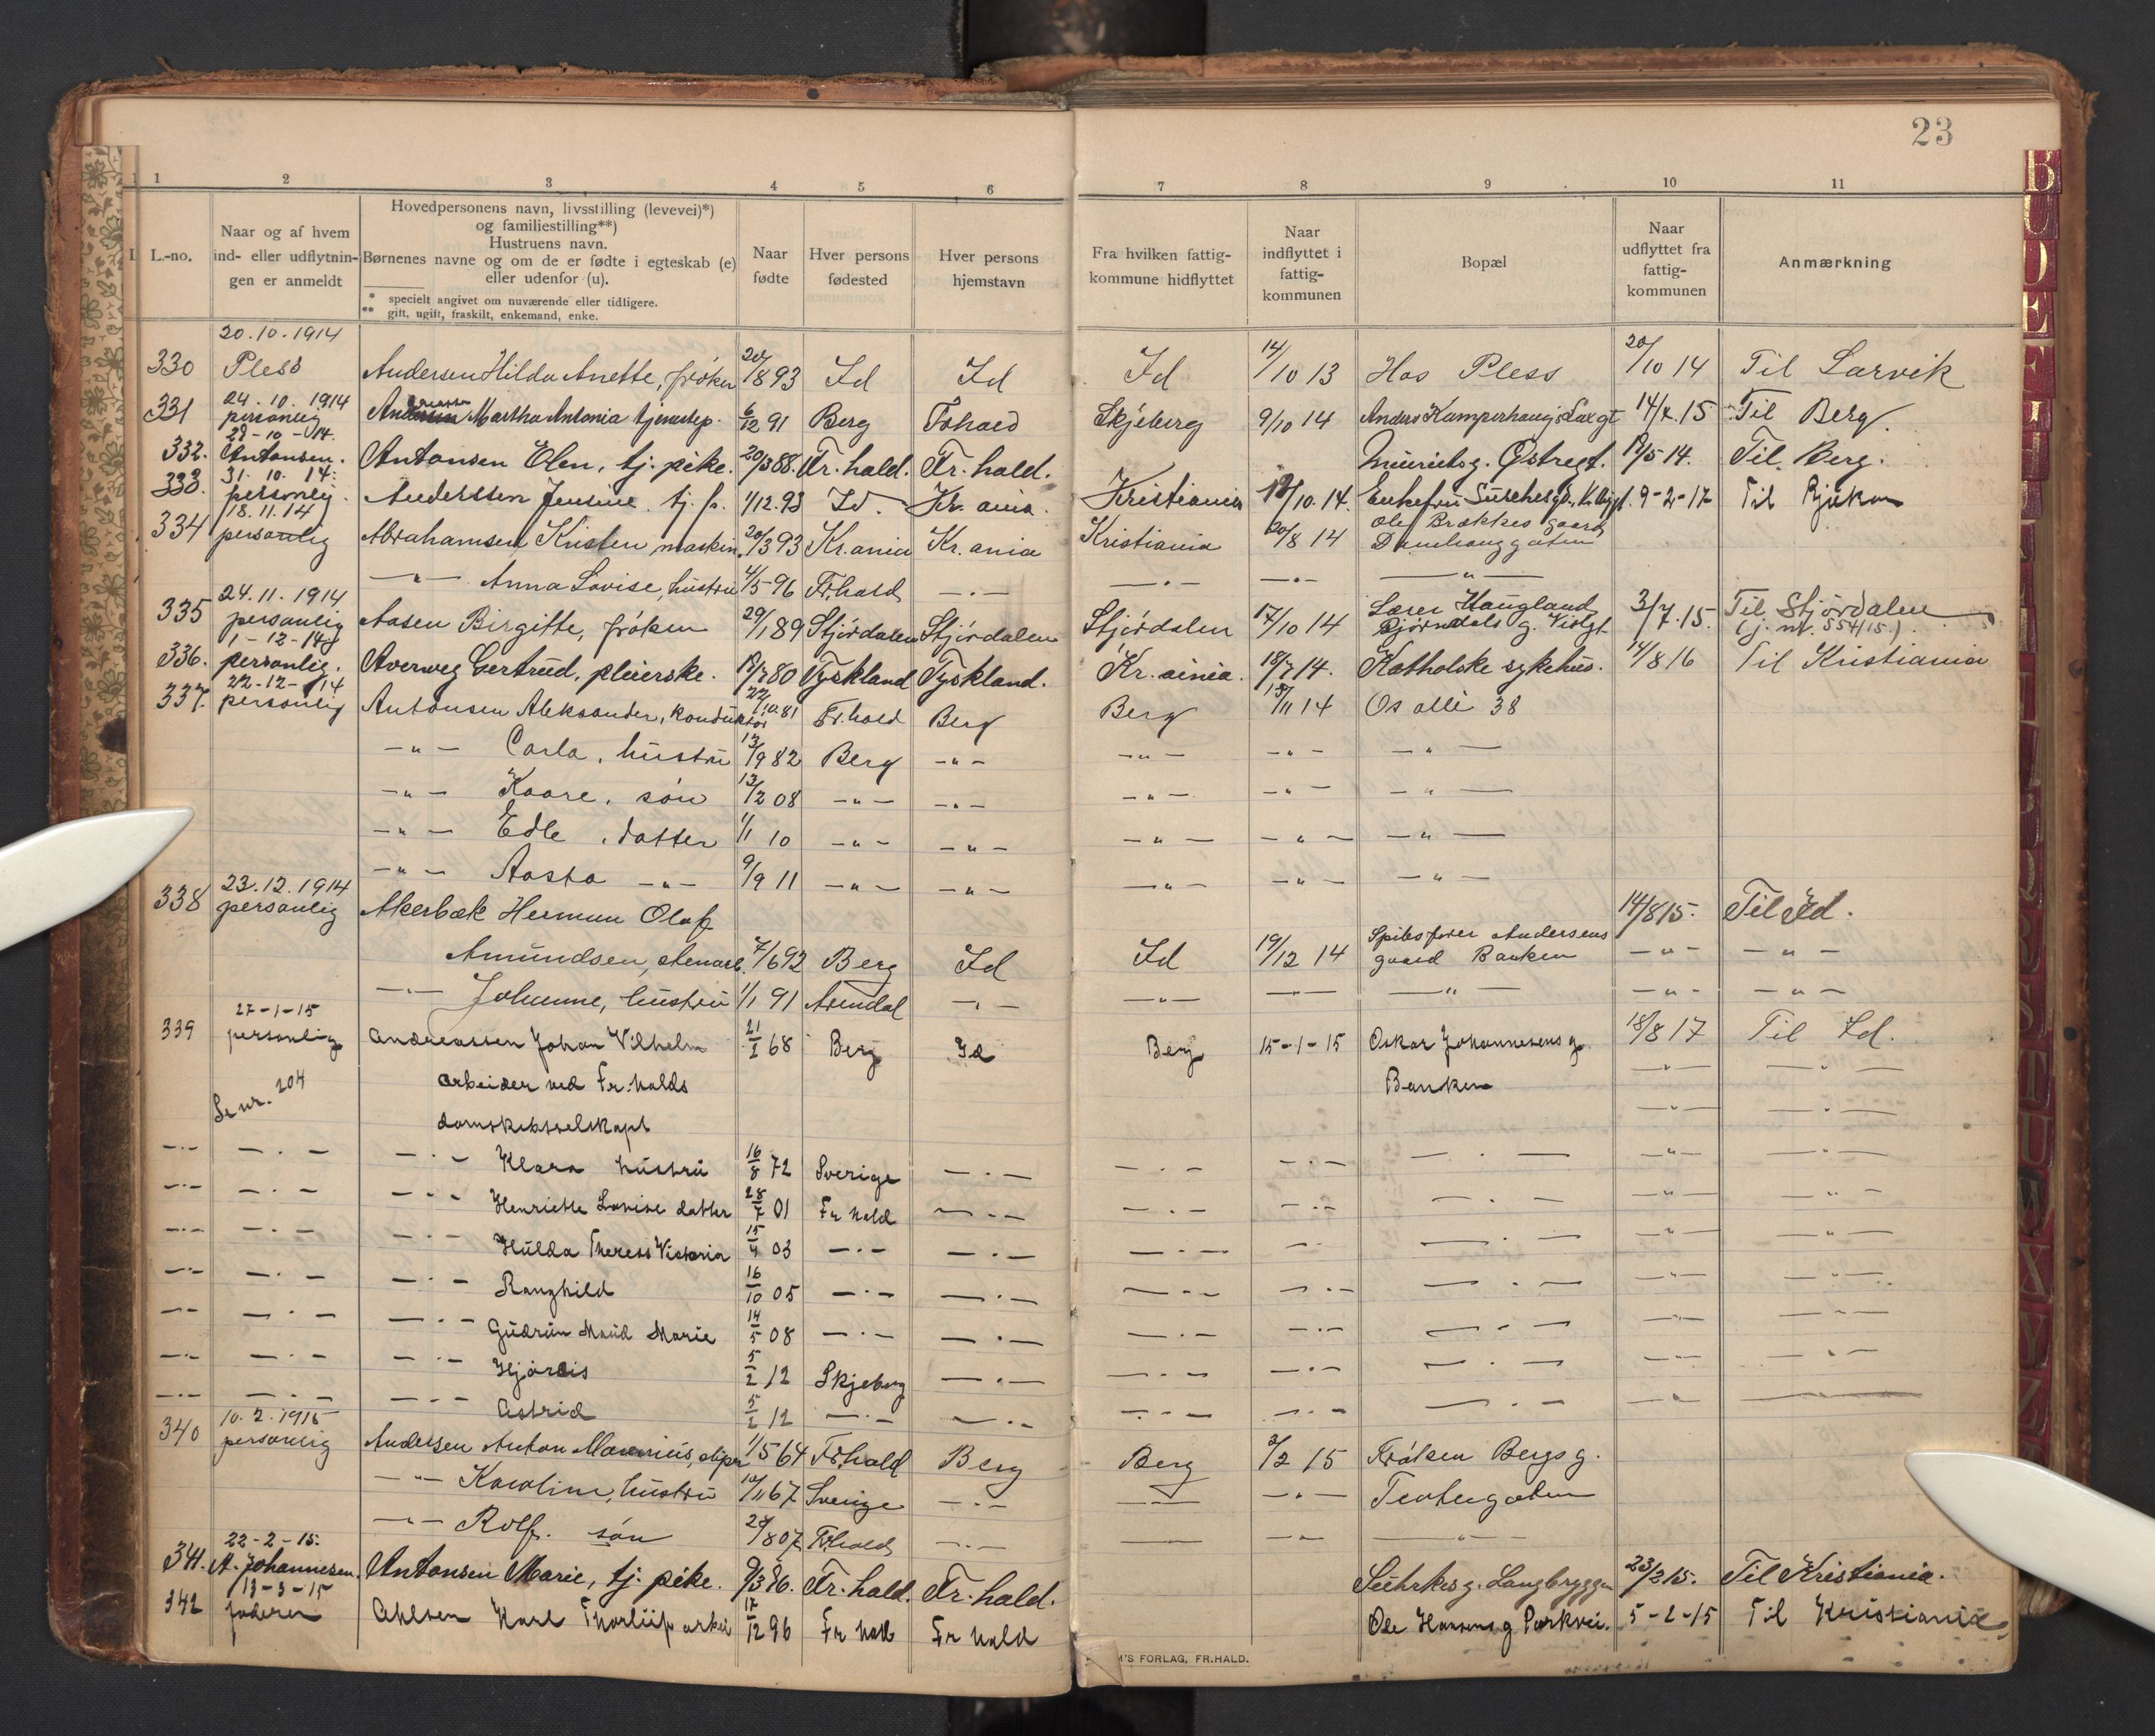 23
1 2 3 4 5 6 7 8 9 10 11
L.-no.
Naar og af hvem
ind- eller udflytnin-
gen er anmeldt
Hovedpersonens navn, livsstilling (levevei)*)
og familiestilling**)
Hustruens navn.
Børnenes navne og om de er fødte i egteskab (e)
eller udenfor (u).
* specielt angivet om nuværende eller tidligere.
** gift, ugift, fraskilt, enkemand, enke.
Naar
fødte
Hver persons
fødested
Hver persons
hjemstavn
Fra hvilken fattig-
kommune hidflyttet
Naar
indflyttet i
fattig-
kommunen
Bopæl
Naar
udflyttet fra
fattig-
kommunen
Anmærkning
20.10.1914
330 Pless Andersen Hilda Anette, frøken 20/8 93 Id Id Id 14/10 13 Hos Pless 20/10 14 Til Larvik
24.10.1914
331 personlig Martha Antonia tjenestep. 6/12 91 Berg Frhald Skjeberg 9/10 14 14/7.15 Til Berg.
29-10-14.
332. Antonsen. Antonsen Elen, tj. pike. 20/3 88. Fr.hald. Fr.hald. Østregt. 12/5-14. Til Berg.
31.10.14.
333. personlig. Anderssen Jensine tj. p. 1/12.93 Id. Kr.ania. Kristiania 12/10.14. 9-2-17 Til Rjukan
18.11.14
334 personlig Abrahamsen Kristen maskin. 20/3 93 Kr.ania Kr.ania Kristiania 20/8 14 Ole Brækkes gaard
Damhauggaten
—"— Anna Lovise, hustru 4/5-96 Fr.hald —"— —"— —"— —"—
24.11.1914
335 personlig Aasen Birgitte, frøken 29/1 89 Stjørdalen Stjørdalen Stjørdalen 17/10 14 Lærer Haugland
Bjørndals g. Violgt 3/7.15. Til Stjørdalen
(j. nr. 554/15.)
1-12-14
336. personlig. Averweg Gertrud, pleierske. 18/7 80 Tyskland Tyskland. Kr.ania. 18/7 14. Katholske sykehus. 14/8 16 Til Kristiania
22-12-14
337. personlig Antonsen Aleksander, konduktør 22/10.81 Fr.hald Berg Berg 15/11 14 Os alle 38
—"— Carla, hustru 13/9 82 Berg —"— —"— —"— —"—
—"— Kaare, søn 13/2 08 —"— —"— —"— —"— —"—
—"— Edle, datter 1/1 10 —"— —"— —"— —"— —"—
—"— Aasta —"— 9/9 11 —"— —"— —"— —"— —"—
23.12.1914
338 personlig Akerbæk Herman Olaf 14/8 15. Til Id.
Amundsen, stenarb. 7/6 92 Berg Id Id 19/12 14 Andersens
gaard Banken —"— —"—
—"— Johanne, hustru 1/1 91 Arendal —"— —"— —"— —"— —"— —"—
27-1-15
339 personlig Andreassen Johan Vilhelm 21/2 68 Berg Id Berg 15-1-15 Oskar Johannesens g. 18/8 17 Til Id.
Se nr. 204 arbeider ved Fr.halds Banken —"— —"—
damskibsselskapt —"— —"—
—"— —"— —"— Klara hustru 16/8 72 Sverige —"— —"— —"— —"— —"— —"—
—"— —"— —"— Henriette Lovise datter 28/7 01 Fr hald —"— —"— —"— —"— —"— —"—
—"— —"— —"— Hulda Therese Victoria 15/4 03 —"— —"— —"— —"— —"— —"— —"—
—"— —"— —"— Ranghild 16/10 05 —"— —"— —"— —"— —"— —"— —"—
—"— —"— —"— Gudrun Maud Marie 14/5 08 —"— —"— —"— —"— —"— —"— —"—
—"— —"— —"— Hjørdis 5/2 12 Skjeberg —"— —"— —"— —"— —"— —"—
—"— —"— —"— Astrid 5/2 12 —"— —"— —"— —"— —"— —"— ——
10.2.1915
340 personlig Andersen Anton 1/5 64 Fr.hald Berg Berg 2/2 15 Frøken Bergs g.
—"— Karoline, hustru 10/11 67 Sverige —"— —— —"— Teatergaten
—"— Rolf. søn 28/8 07 Fr.hald —"— —— —"— —"—
22-2-15.
341. A. Johannesen. Antonsen Marie, tj. pike. 9/3 86. Fr.hald. Fr.hald. Langbryggen 23/2 15. Til Kristiania.
13-3-15
342 faderen Ahlsen Karl Thorleif arbei 17/12 96 Fr hald Fr hald Ole Hansens g Parkvei. 5-2-15 Til Kristiania
'S FORLAG, FR.HALD.